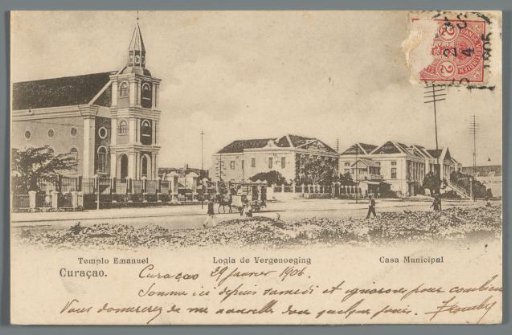 Templo Emanuel Logia de Vergenoeging Casa Municipal
Curaçao. Curaçao 29 janvier 1906.
Sommes ici depuis samedi et ignorons pour combien
Vous donnerez de mes nouvelles dans quelque jours.